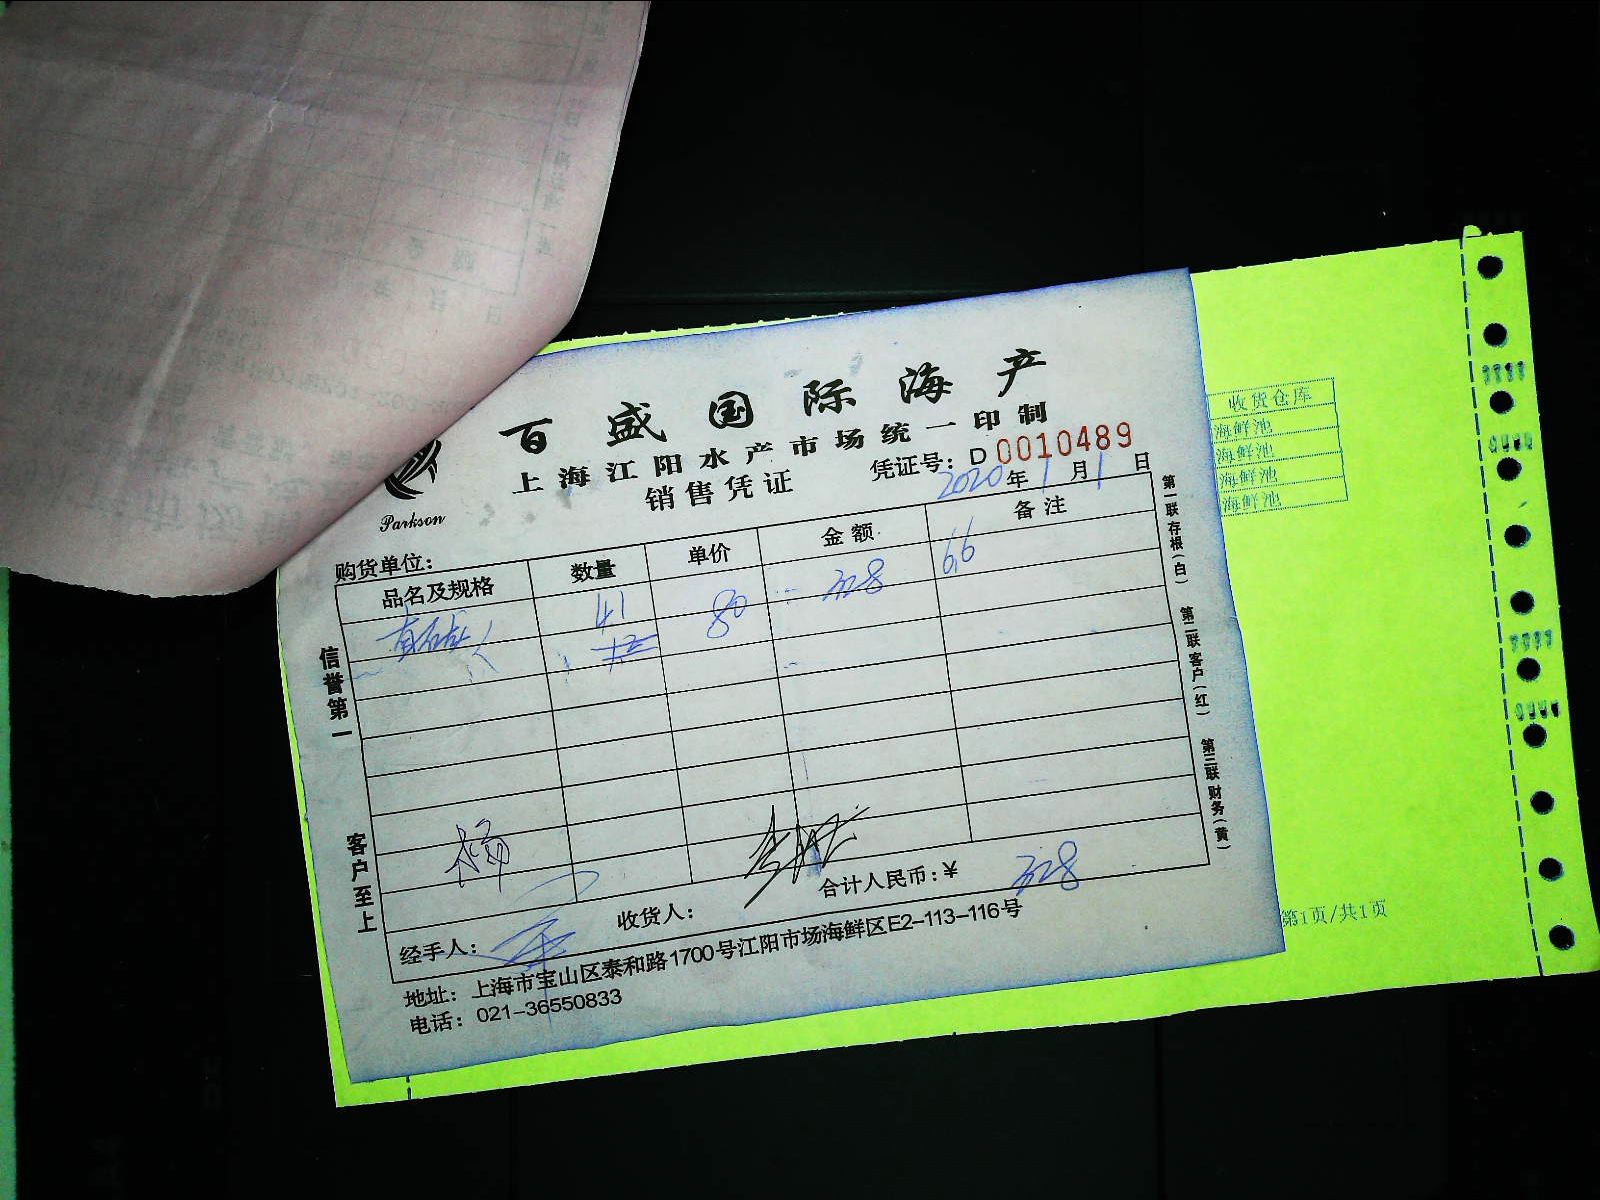 百盛国际海产
上海江阳水产市场统一印制
销售凭证
凭证号: D 0010489
Parkson
2020年1月1日
购货单位:
品名及规格 数量 单价 金额 备注
41 80 328 6.6
信誉第一
客户至上
第一联存根(白)
第二联客户(红)
第三联财务(黄)
合计人民币:¥ 328
收货人:
经手人:
地址: 上海市宝山区泰和路1700号江阳市场海鲜区E2-113-116号
电话: 021-36550833
收货仓库
海鲜池
海鲜池
海鲜池
海鲜池
第1页/共1页